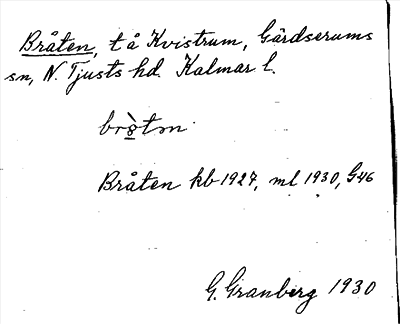 Bråten, t å Kvistrum, Gärdserums
sn, N. Tjusts hd. Kalmar l.
brò̱tən
Bråten kb 1927, ml 1930, G46
G. Granberg 1930